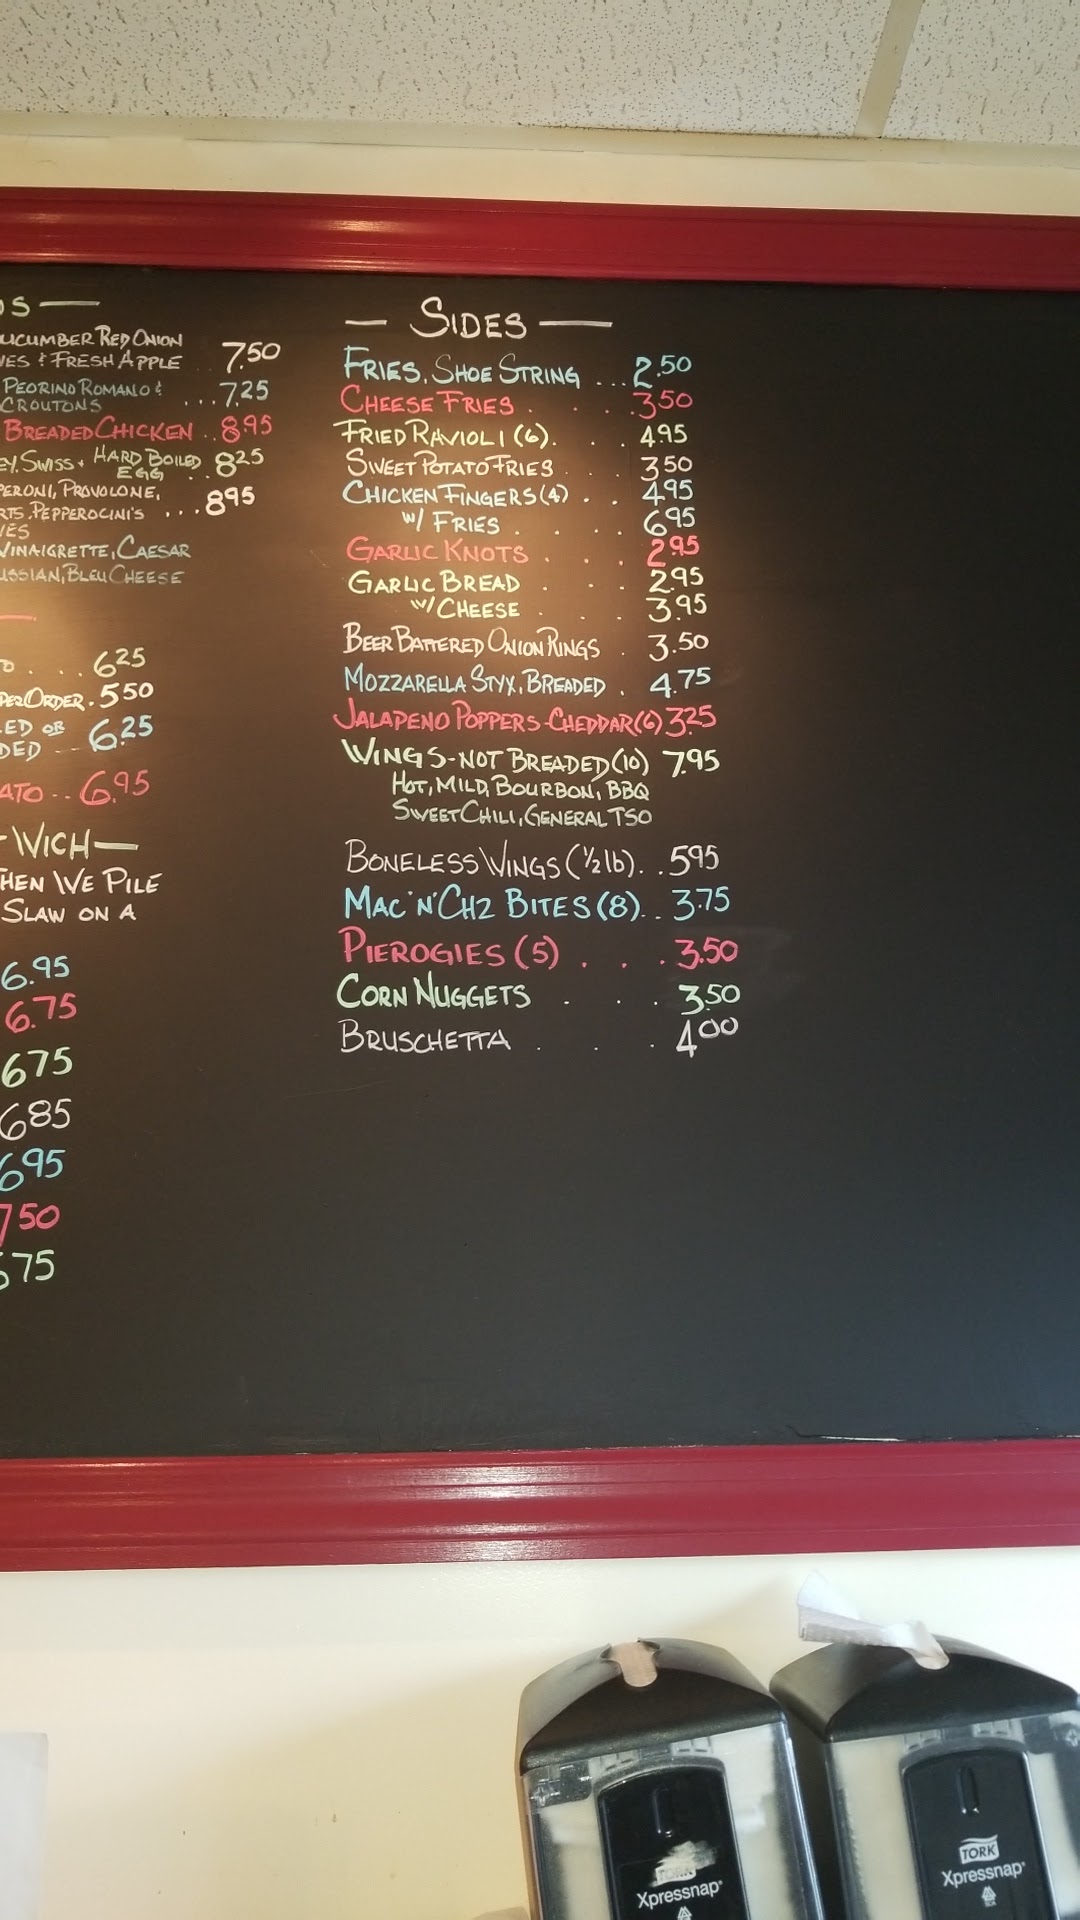 UCUMBER RED ONION
& FRESH APPLE 7.50
PEORINO ROMANO &
CROUTONS ... 7.25
BREADED CHICKEN .. 8.95
SWISS + HARD BOILED
EGG .. 8.25
PERONI, PROVOLONE,
RTS. PEPPEROCINI'S ... 8.95
VINAIGRETTE, CAESAR
USSIAN, BLEU CHEESE
. ... 6.25
PER ORDER . 5.50
LED OR
DED -- 6.25
ATO .. 6.95
- WICH —
THEN WE PILE
SLAW ON A
6.95
6.75
6.75
6.85
6.95
7.50
75
— SIDES —
FRIES, SHOE STRING ... 2.50
CHEESE FRIES . . . 3.50
FRIED RAVIOLI (6). . . 4.95
SWEET POTATO FRIES . . 3.50
CHICKEN FINGERS (4) . . 4.95
W/ FRIES . . . 6.95
GARLIC KNOTS . . . 2.95
GARLIC BREAD . . 2.95
W/ CHEESE . . 3.95
BEER BATTERED ONION RINGS . 3.50
MOZZARELLA STYX, BREADED . 4.75
JALAPENO POPPERS-CHEDDAR (6) 3.25
WINGS-NOT BREADED (10) 7.95
HOT, MILD, BOURBON, BBQ
SWEET CHILI, GENERAL TSO
BONELESS WINGS (1/2 lb). . 5.95
MAC 'N' CHZ BITES (8) . . 3.75
PIEROGIES (5) . . . 3.50
CORN NUGGETS . . . 3.50
BRUSCHETTA . . . 4.00
TORK
Xpressnap
TORK
Xpressnap